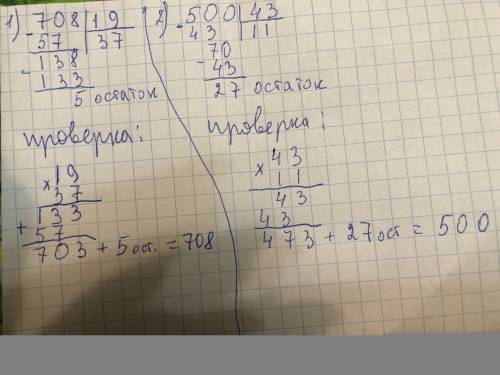 1) -708 | 19
57 | 37
-138
133
5 остаток
проверка:
×19
37
+133
57
703 + 5 ост. = 708
2) -500 | 43
43 | 11
-70
43
27 остаток
проверка:
×43
11
43
43
473 + 27 ост = 500